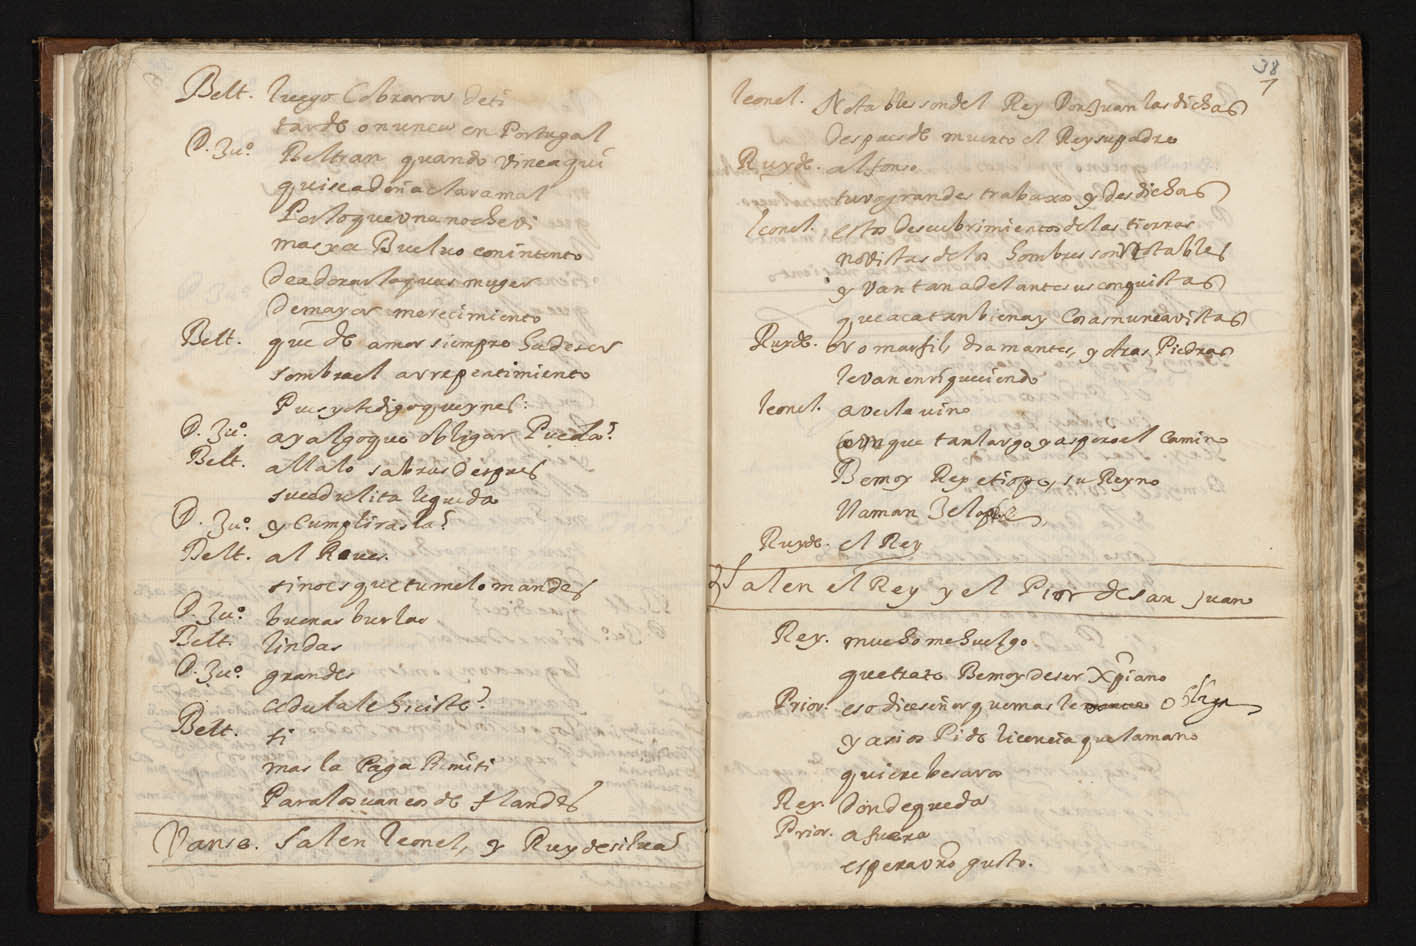 Belt. luego Cobraras deti
tarde o nunca en Portugal
D. Ju.º Beltran quando vineaqui
quiseadoña claramal
Porloquevnanochevi
masya Buelvo conintento
deadorarlaquees muger
demayor merecimiento
Belt. que de amor siempre hadeser
sombrael arrepentimiento
Puesyotedigoqueynes:
D. Ju.º ayalgoque obligar Pueda?
Belt. allalo sabras despues
sucedulita lequeda
D. Ju.º y Cumplirasla?
Belt. al Reues.
sinoes quetumelo mandes
D. Ju.º buenas burlas
Belt. lindas
D. Ju.º grandes
cedulale hiciste?
Belt. si
mas la Paga Remiti
Paralosvancos de flandes
Vanse. Salen leonel, y Ruy desilva
38
7
leonel. Notables sondel Rey Donjuan lasdichas
despuesde muerto el Reysupadre
Ruyde. alfonso
tuvograndes trabaxos y desdichas
leonel. estos descubrimientosdelas tierras
novistasdelos hombres son Notables
y vantanadelantesusconquistas
queacatanbienay Cosasnuncavistas
Ruyde. oro marfil, diamantes, y otras Piedras
levanenriqueciendo
leonel. averle vino
aunque tanlargo, yasperoel camino
Bemoy Rey etiope y su Reyno
llaman Jelofe
Ruyde. el Rey
Salen el Rey y el Prior desan Juan
Rey. muchomehuelgo
quetrate Bemoydeser Xpiano
Prior. eso diceseñor quemas le obliga
y asios Pide licencia quelamano
quierebesaros
Rey. dondequeda
Prior. afuera
esperavro gusto.